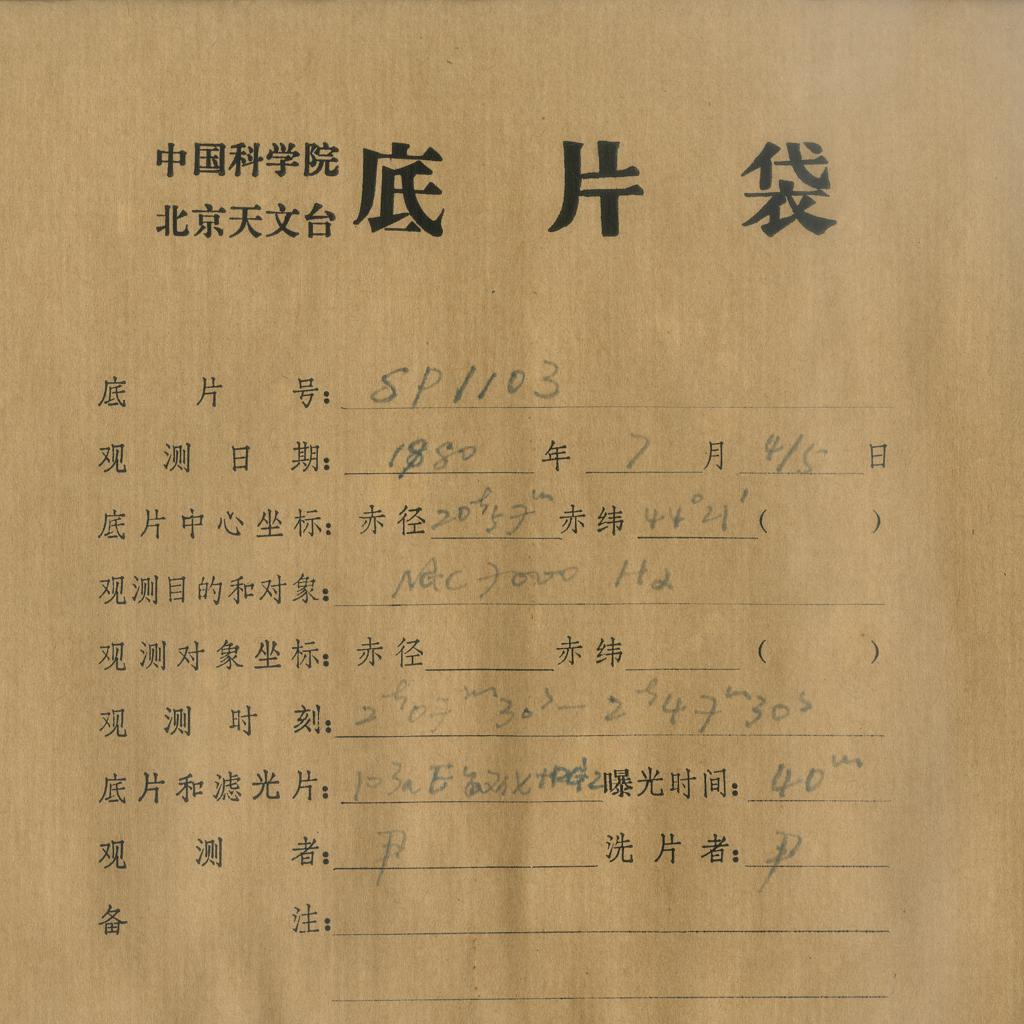 中国科学院
北京天文台 底片袋
底片号: SP1103
观测日期: 1980 年 7 月 4/5 日
底片中心坐标: 赤径 20ʰ57ᵐ 赤纬 44°21′ ( )
观测目的和对象: NGC 7000 Hα
观测对象坐标: 赤径 赤纬 ( )
观测时刻: 2ʰ07ᵐ30ˢ — 2ʰ47ᵐ30ˢ
底片和滤光片: 103aE 敏化 曝光时间: 40ᵐ
观测者: 尹 洗片者: 尹
备注: